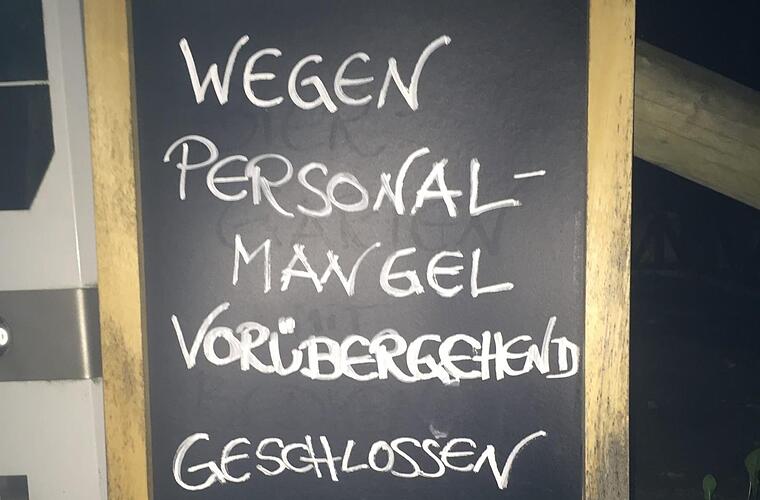 WEGEN
PERSONAL-
MANGEL
VORÜBERGEHEND
GESCHLOSSEN